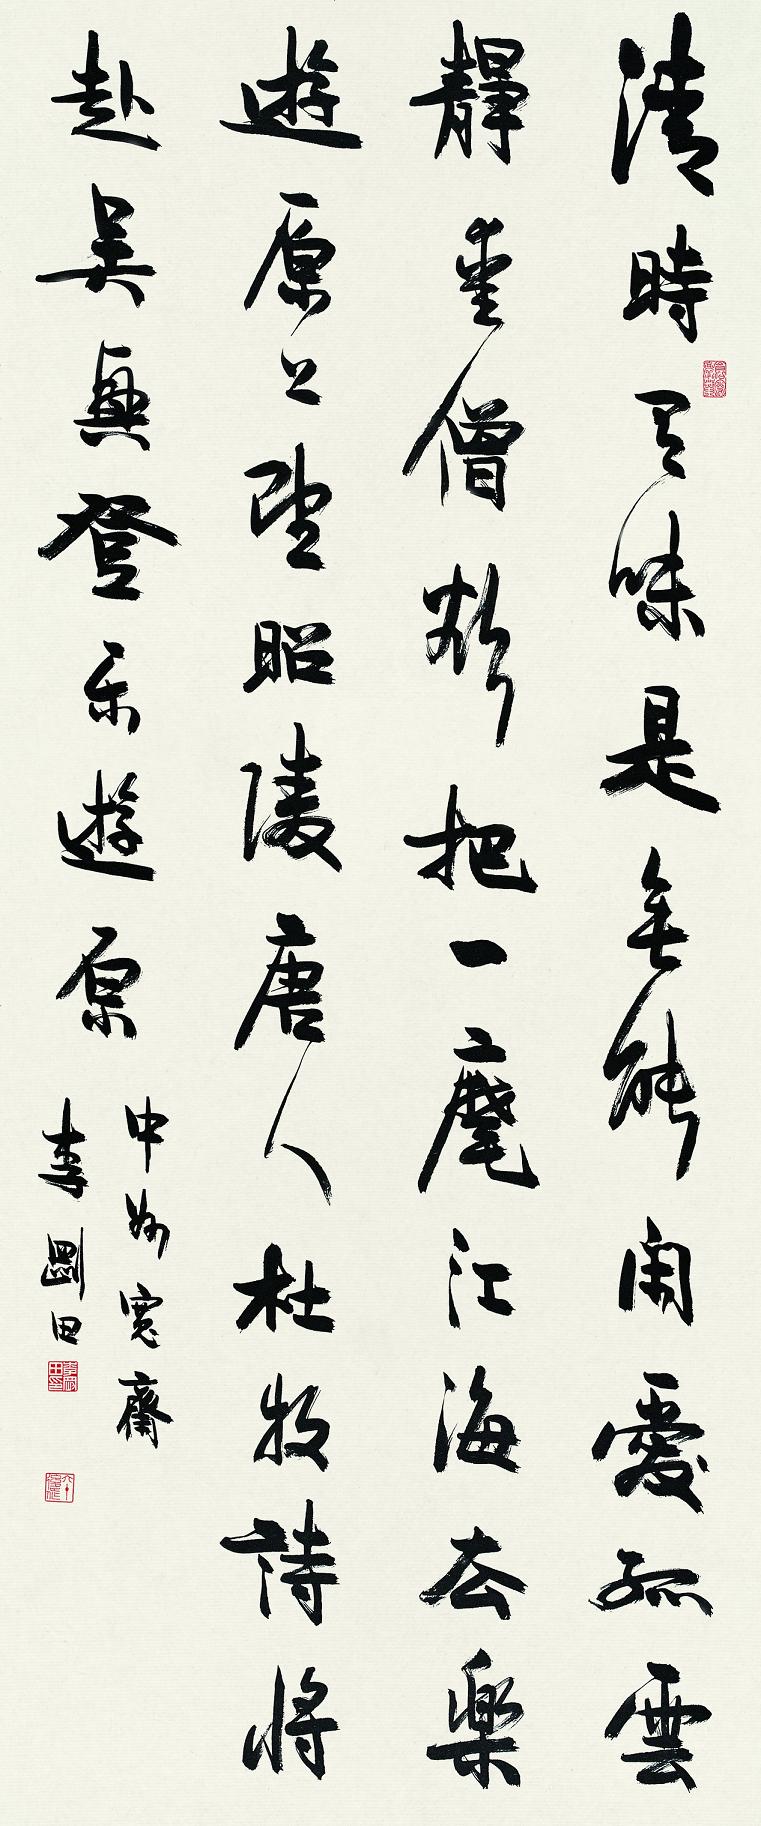 清時有味是無能閑愛孤雲
靜愛僧欲把一麾江海去樂
遊原上望昭陵唐人杜牧詩將
赴吳興登乐遊原
中州寬齋
李剛田